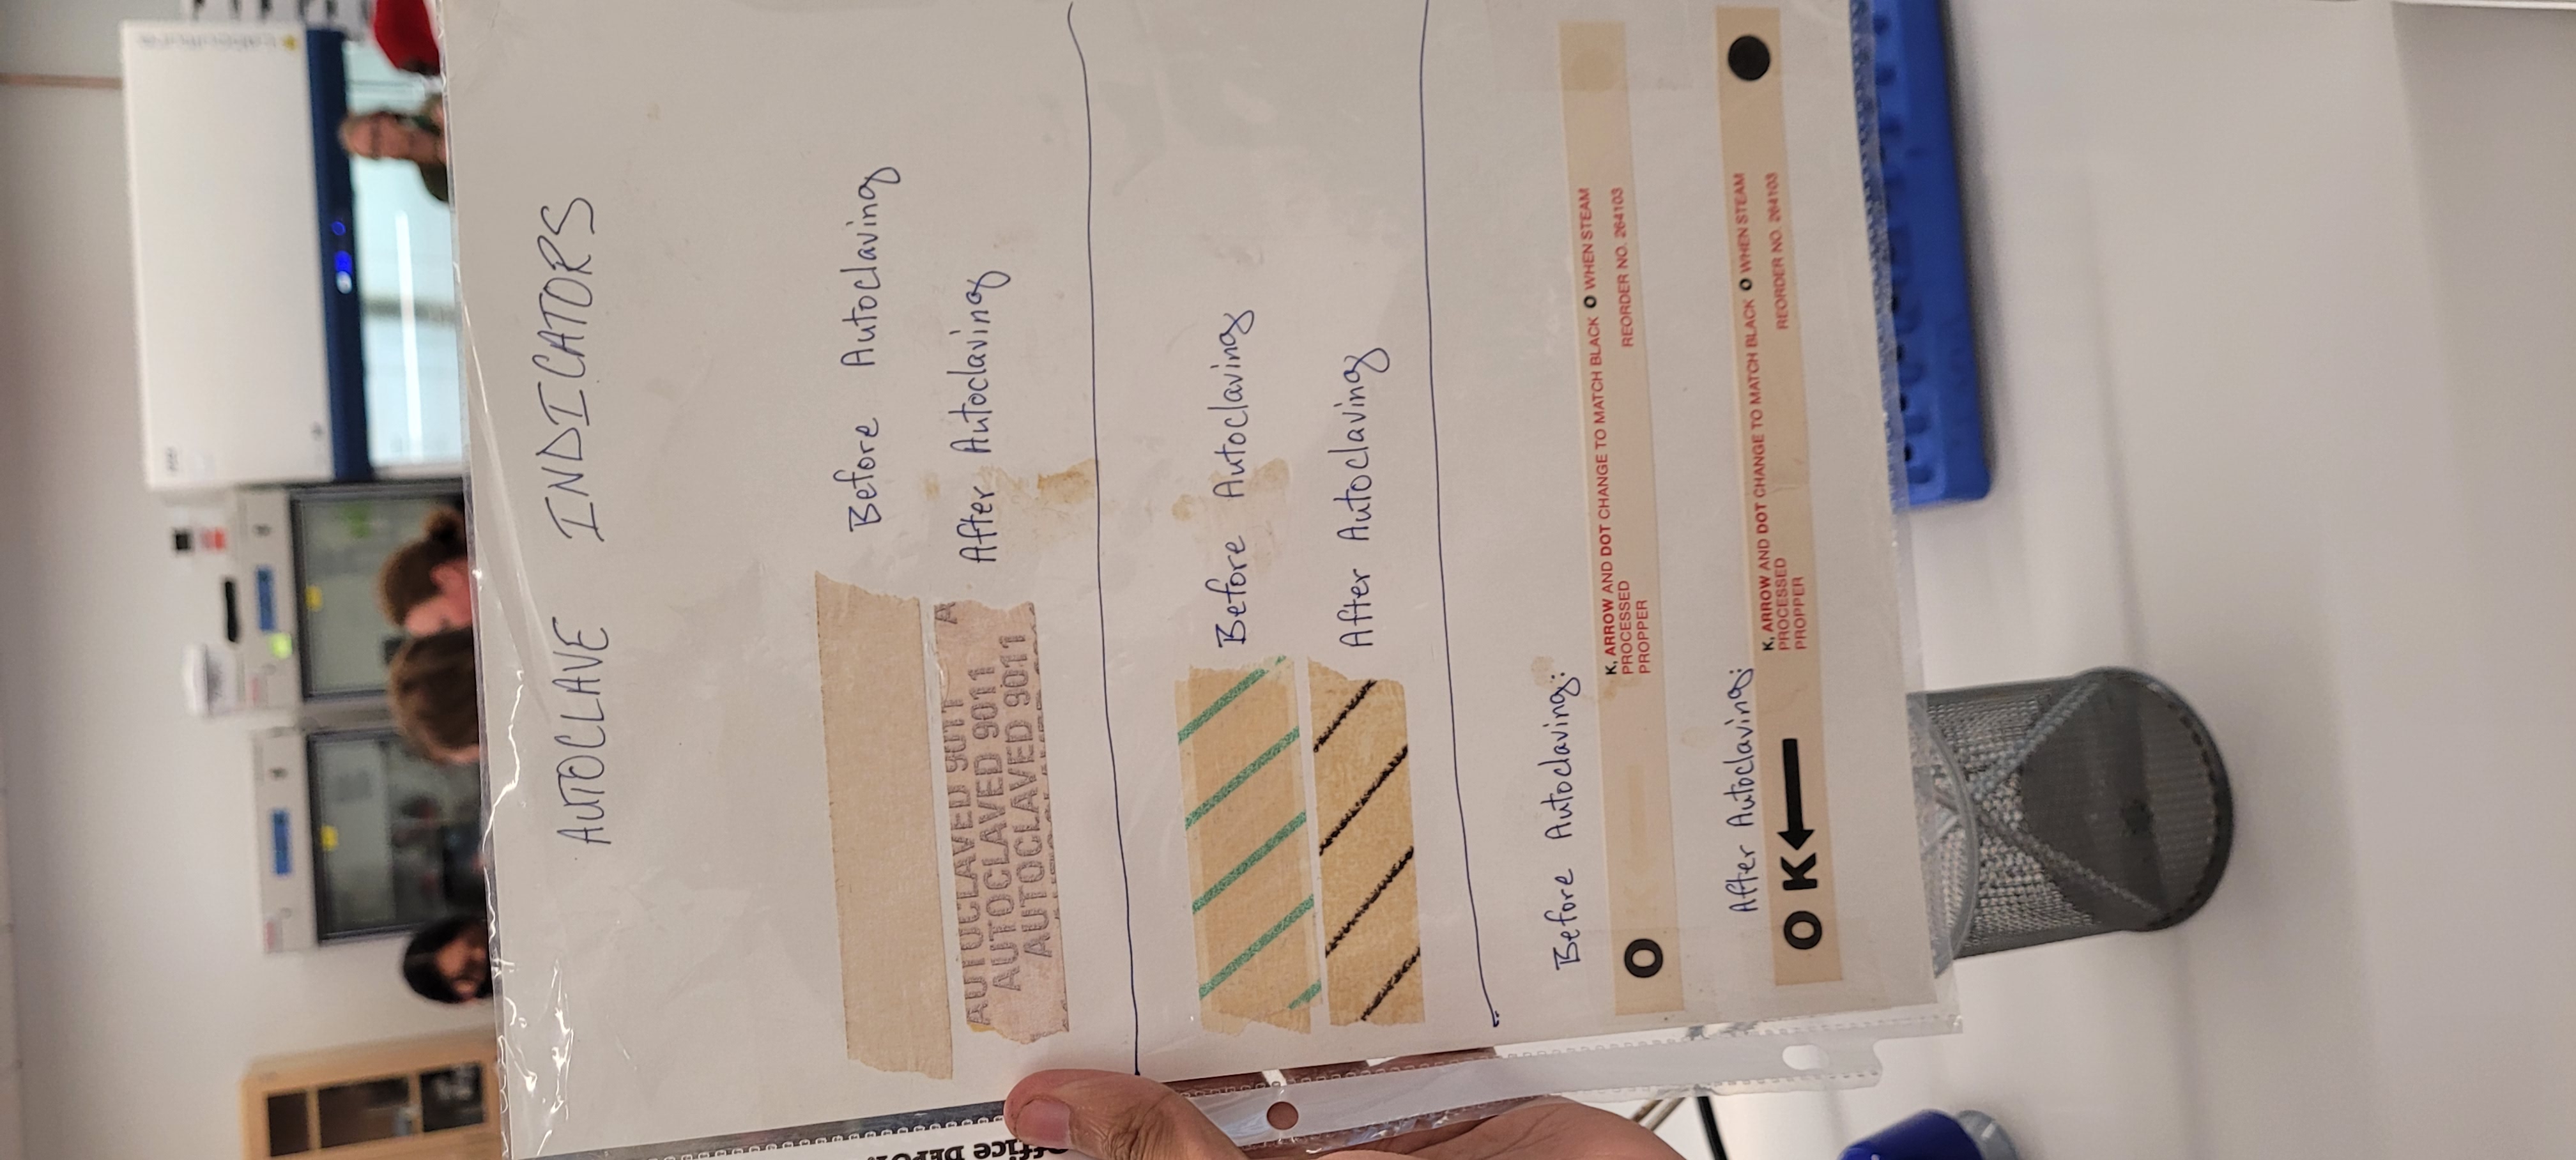 AUTOCLAVE INDICATORS
Before Autoclaving
AUTOCLAVED 9011 A
AUTOCLAVED 9011
AUTOCLAVED 9011
After Autoclaving
Office DEPOT
Before Autoclaving
After Autoclaving
Before Autoclaving:
O
K, ARROW AND DOT CHANGE TO MATCH BLACK O WHEN STEAM
PROCESSED REORDER NO. 264103
PROPPER
After Autoclaving:
O K
K, ARROW AND DOT CHANGE TO MATCH BLACK O WHEN STEAM
PROCESSED REORDER NO. 264103
PROPPER